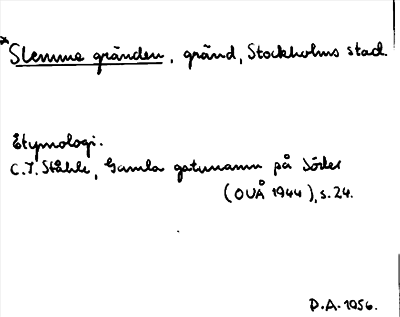 Slemme gränden, gränd, Stockholms stad.
Etymologi.
C.I. Ståhle, Gamla gatunamn på Söder
(OUÅ 1944), s. 24.
D.A. 1956.